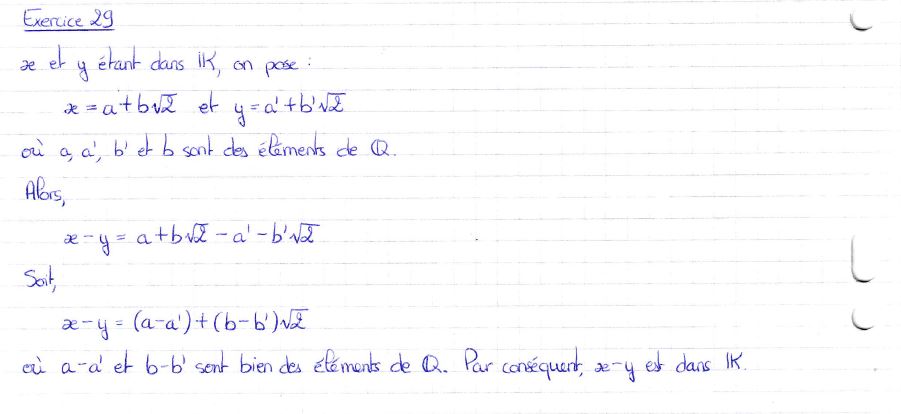 Exercice 29
x et y étant dans IK, on pose :
x = a + b√2 et y = a' + b'√2
où a, a', b' et b sont des éléments de Q.
Alors,
x - y = a + b√2 - a' - b'√2
Soit,
x - y = (a - a') + (b - b')√2
où a - a' et b - b' sont bien des éléments de Q. Par conséquent, x - y est dans IK.